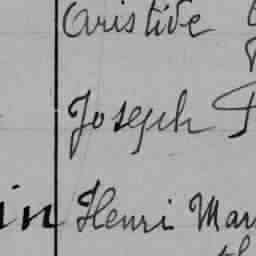 Aristide
Joseph
in Henri Mar